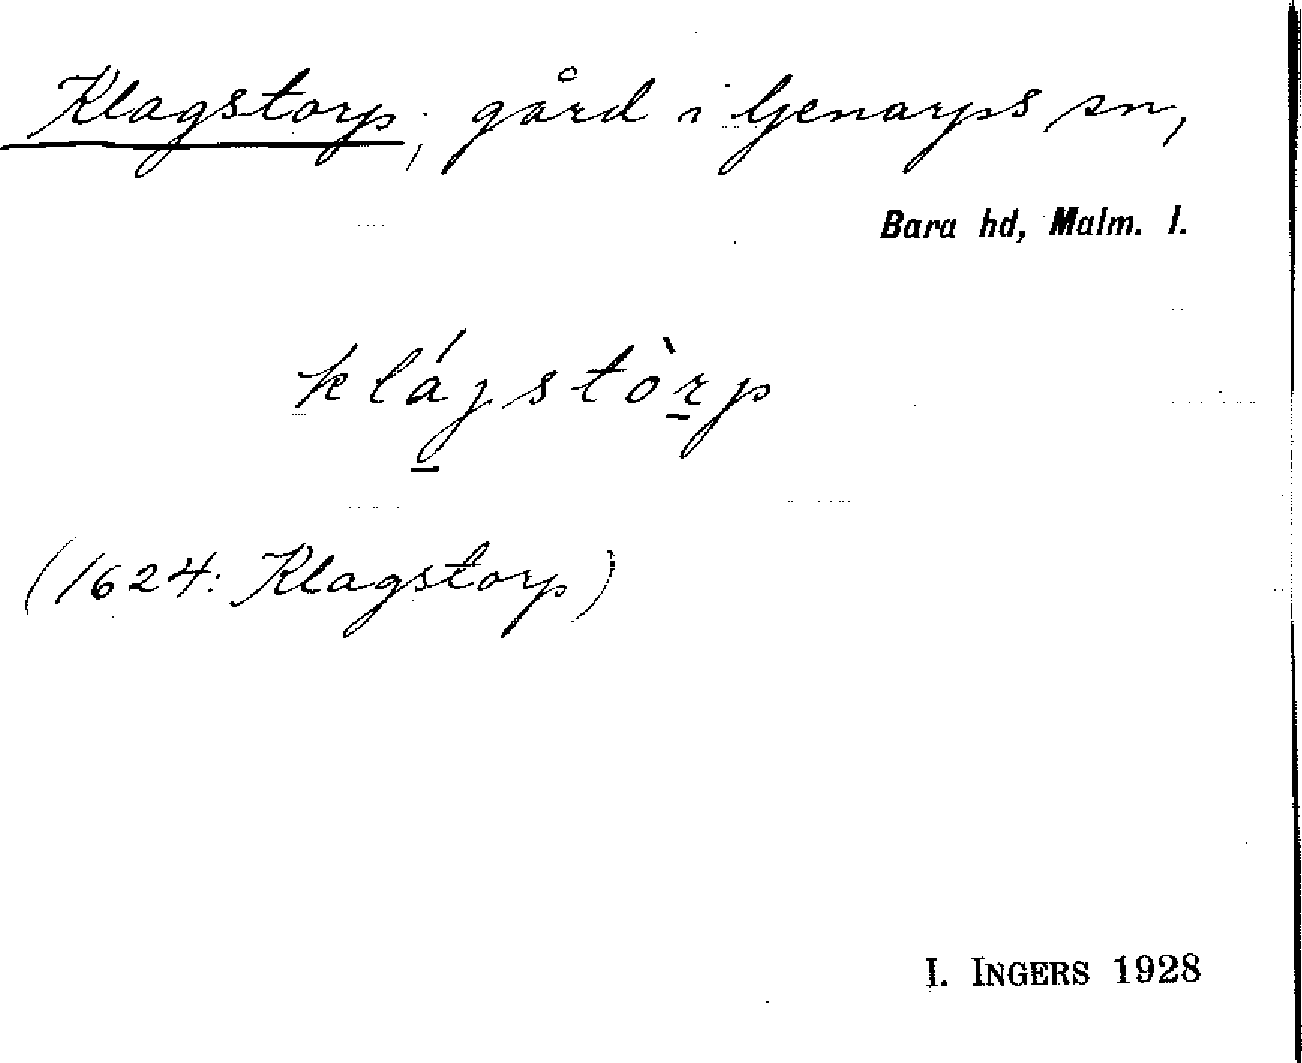 Klagstorp, gård i Genarps sn,
Bara hd, Malm. l.
klágstòr̲p
(1624: Klagstorp)
I. INGERS 1928